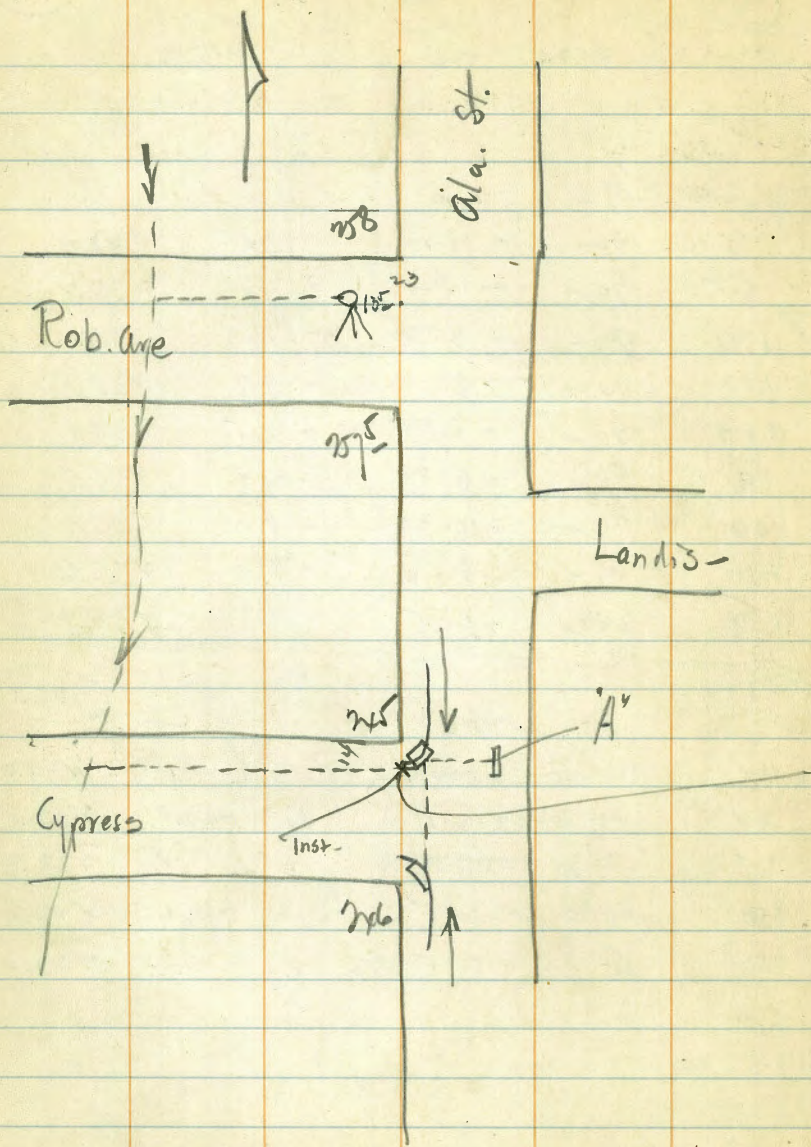 Ala. St.
258
105.23
Rob. Ave
257.5
Landis
245
"A"
14
Cypress
Inst.
246